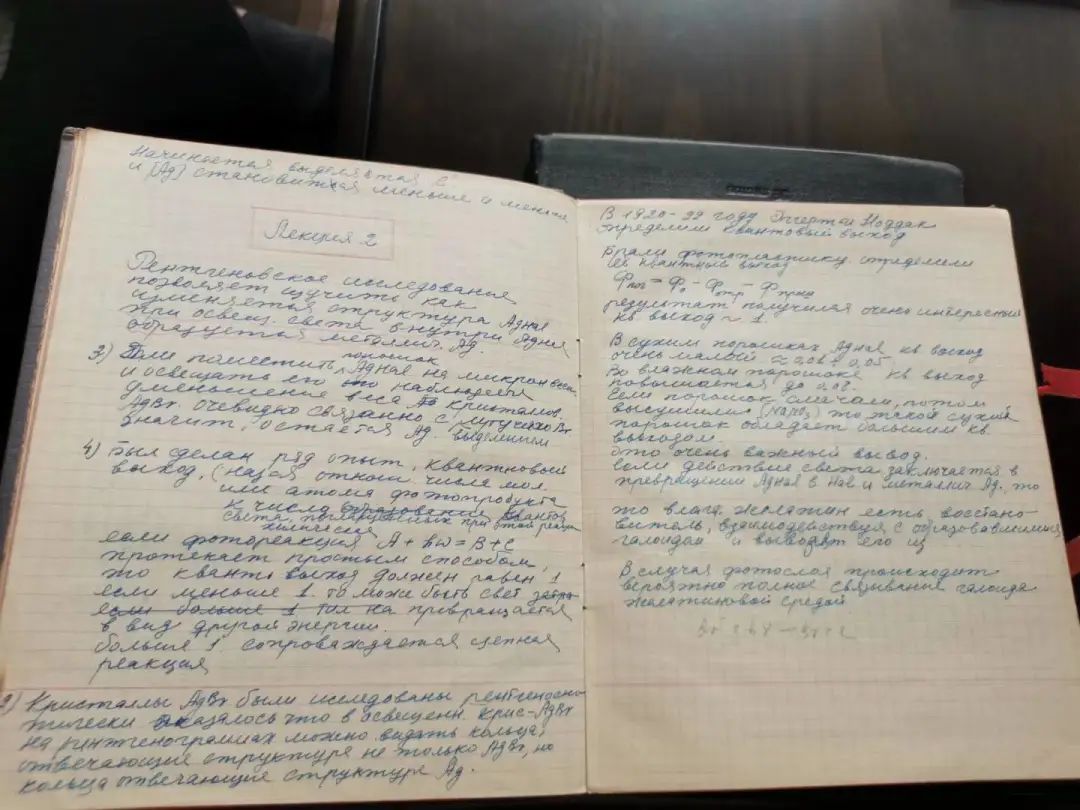 Начинается выделяться е
и [Ag] становиться меньше и меньше
Лекция 2
Рентгеновское исследование
позволяет изучить как
изменяется структура AgHal
при освещ. света внутри AgHal
образуется металлич. Ag.
3) Если поместить порошок AgHal на микрон весы
и освещать его то наблюдается
уменьшение веса кристаллов.
AgBr, очевидно связанно с улетучив. Br
значит, остается Ag. выделением
4) Был сделан ряд опыт. квантновый
выход, (назов отнош числа мол.
или атома фотопродукта
к числу квантов
света, поглащенных при этой реак
химической
если фотореакция A + hω = B + C
протекает простым способом,
то квант. выход должен равен 1
если меньше 1. то може быть свет
если больше 1 превращается
в вид другой энергии.
больше 1 сопроваждается цепная
реакция
2) Кристаллы AgBr были исследованы рентгеногра
фически оказалось что в освещенн. крис-AgBr
на ринтженограммах можно видать кольца,
отвечающие структуре не только AgBr, но
кольца отвечающие структуре Ag.
В 1920-22 году Эггерт и Ноддак
определили квантовый выход
Брали фотопластинку. определили
её квантный выход
результат получился очень интересный
кв выход ~ 1.
В сухим порошках AgHal кв выход
очень малый
Во влажном порошоке кв выход
повышается до
Если порошок смачали, потом
высушили (NaNO₂) то такой сухой
порошок обладает большим кв
выходом.
Это очень важный вывод.
если действие света заключается в
превращении AgHal в Hal и металлич Ag, то
то влаг. желатин есть восстано-
витель, взаимодействуя с образовавшимися
галоидом и выводят его из
В случая фотослоя происходит
вероятно полное связывание галоида
желатиновой средой